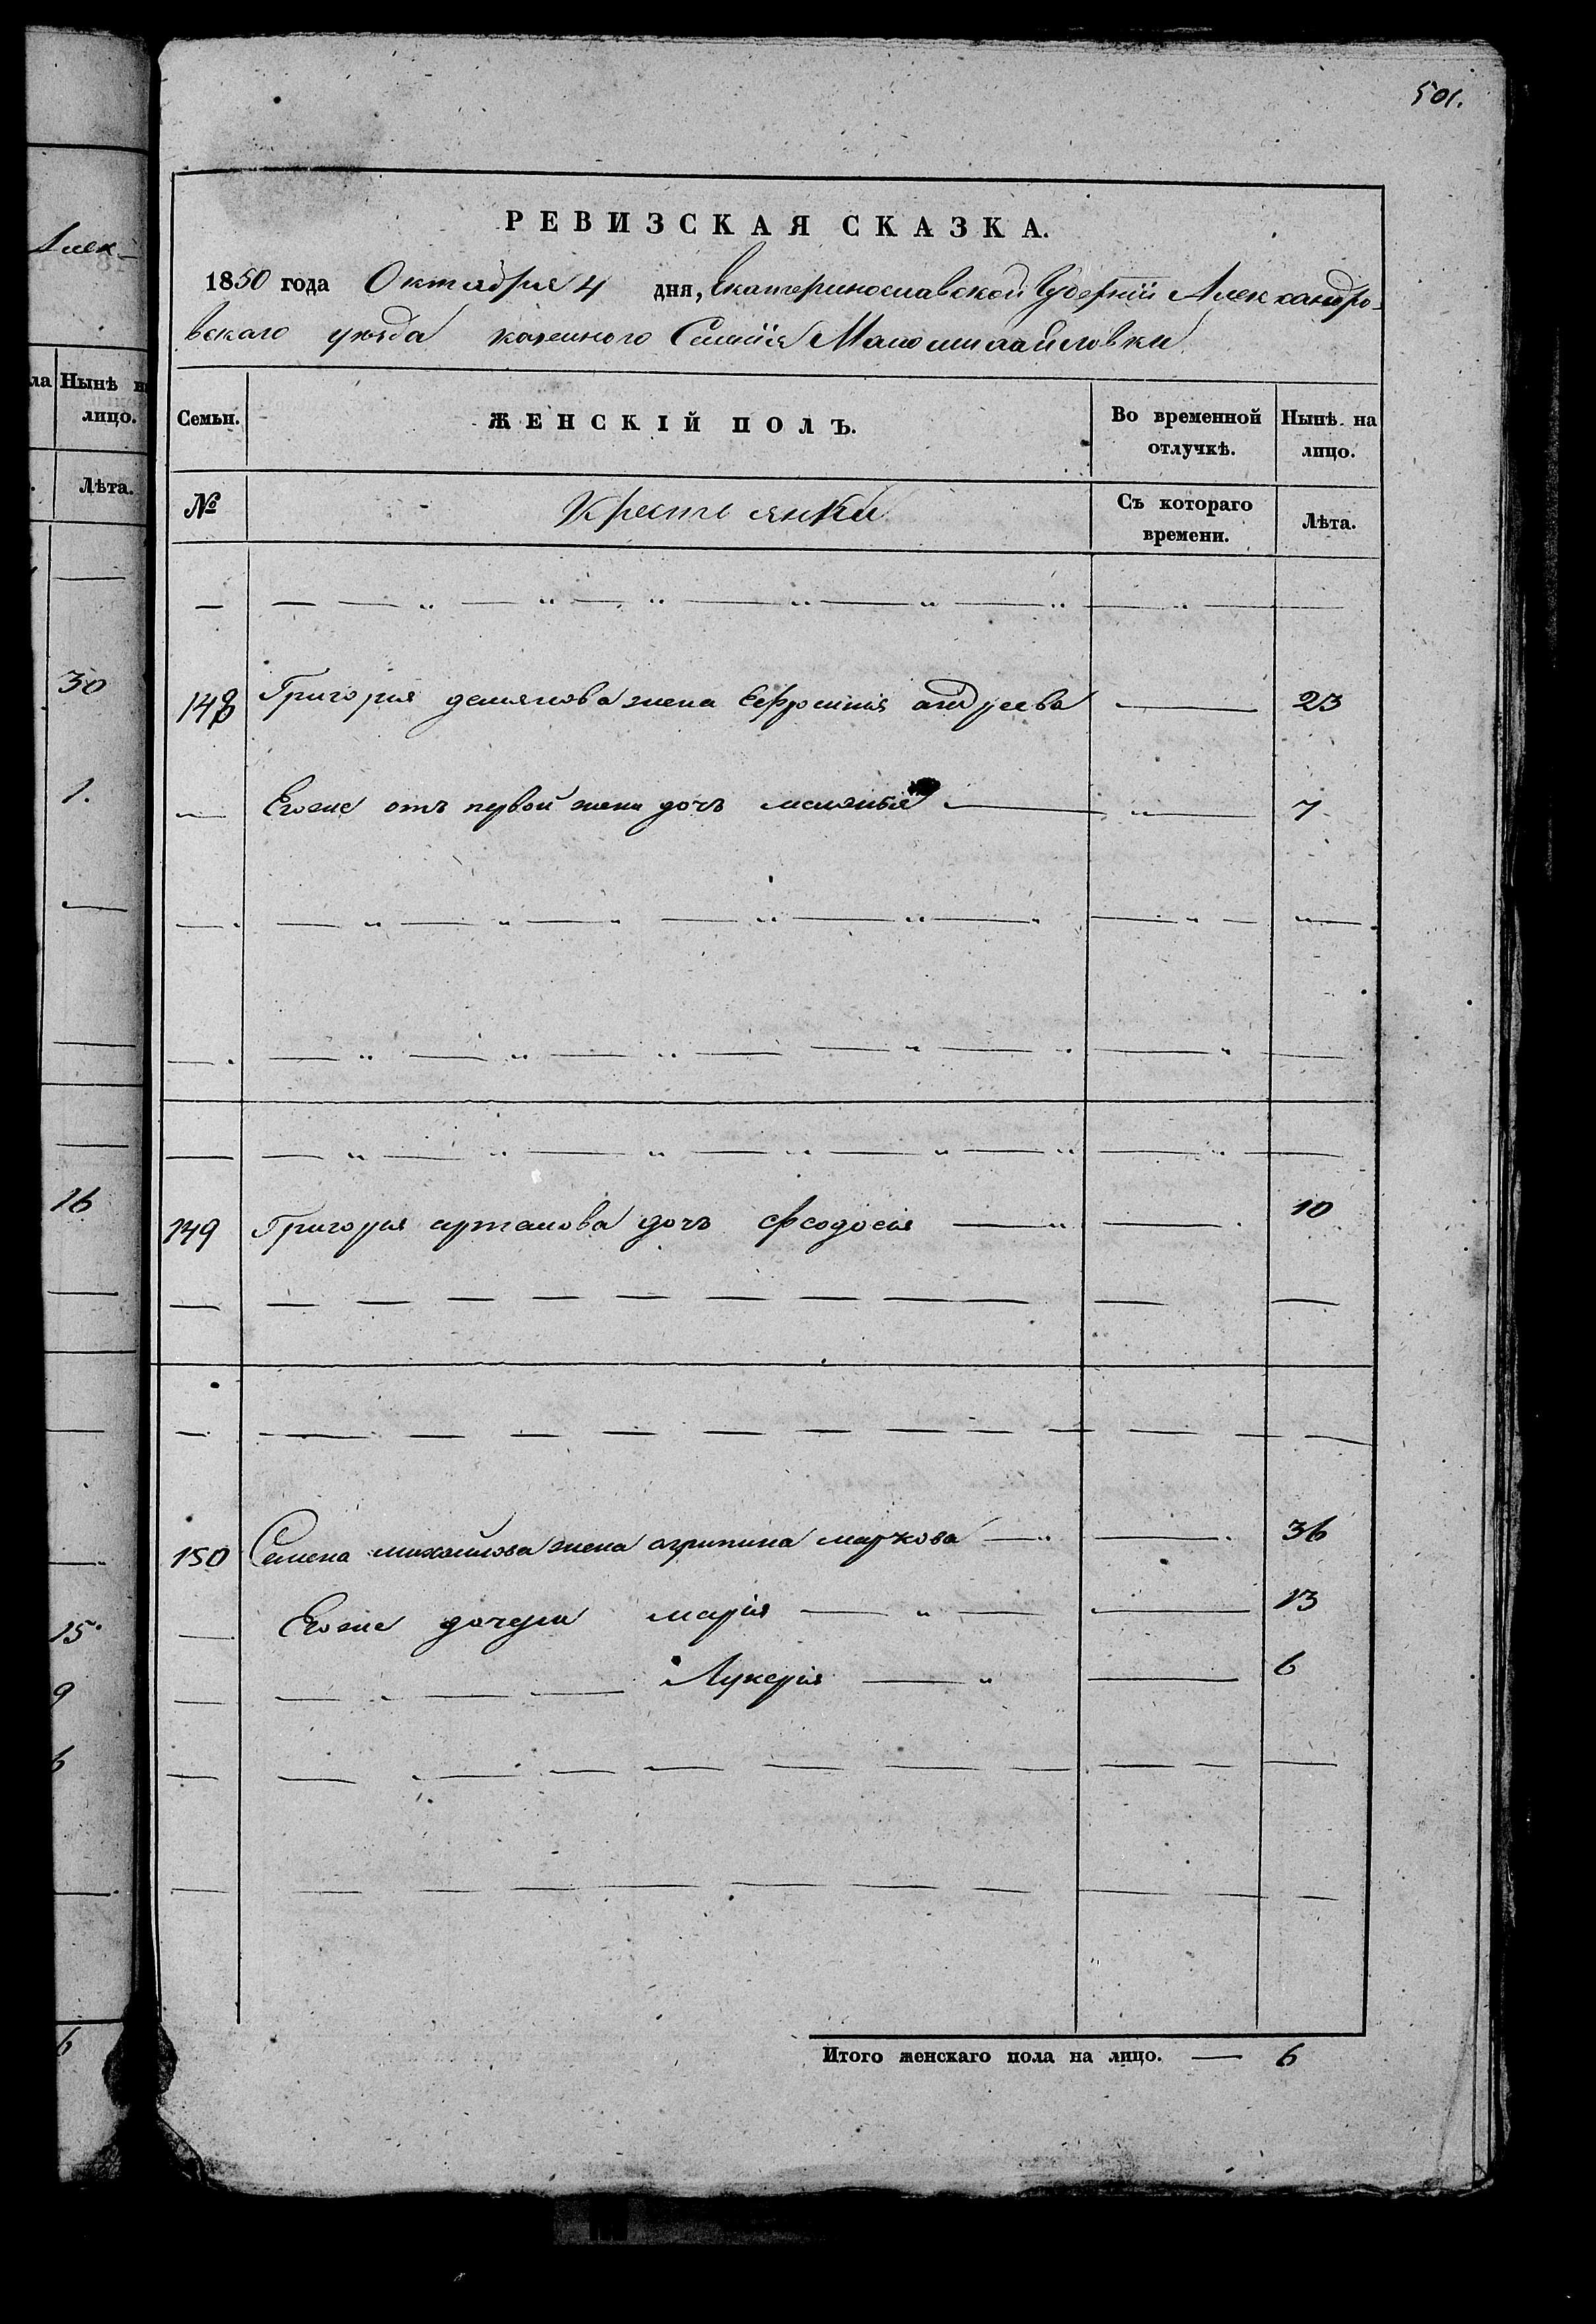 501.
Алек-
РЕВИЗСКАЯ СКАЗКА.
1850 года Октября 4 дня, Екатеринославской Губернии Александро-
вскаго уезда казенного Селения Маломихайловки
ла Нынѣ на
лицо.
Лѣта.
Семьи. ЖЕНСКІЙ ПОЛЪ. Во временной отлучкѣ. Нынѣ на лицо.
№ Крестьянки Съ котораго времени. Лѣта.
30
148 Григория демянова жена Ефросинія андреева 23
1.
Егоже отъ первой жены дочъ 7
16
149 Григория артамова дочъ феодосія 10
150 Семена михайлова жена агрипина маркова 36
15
Егоже дочери марія 13
9
Лукерія 6
6
Итого женскаго пола на лицо. — 6
6